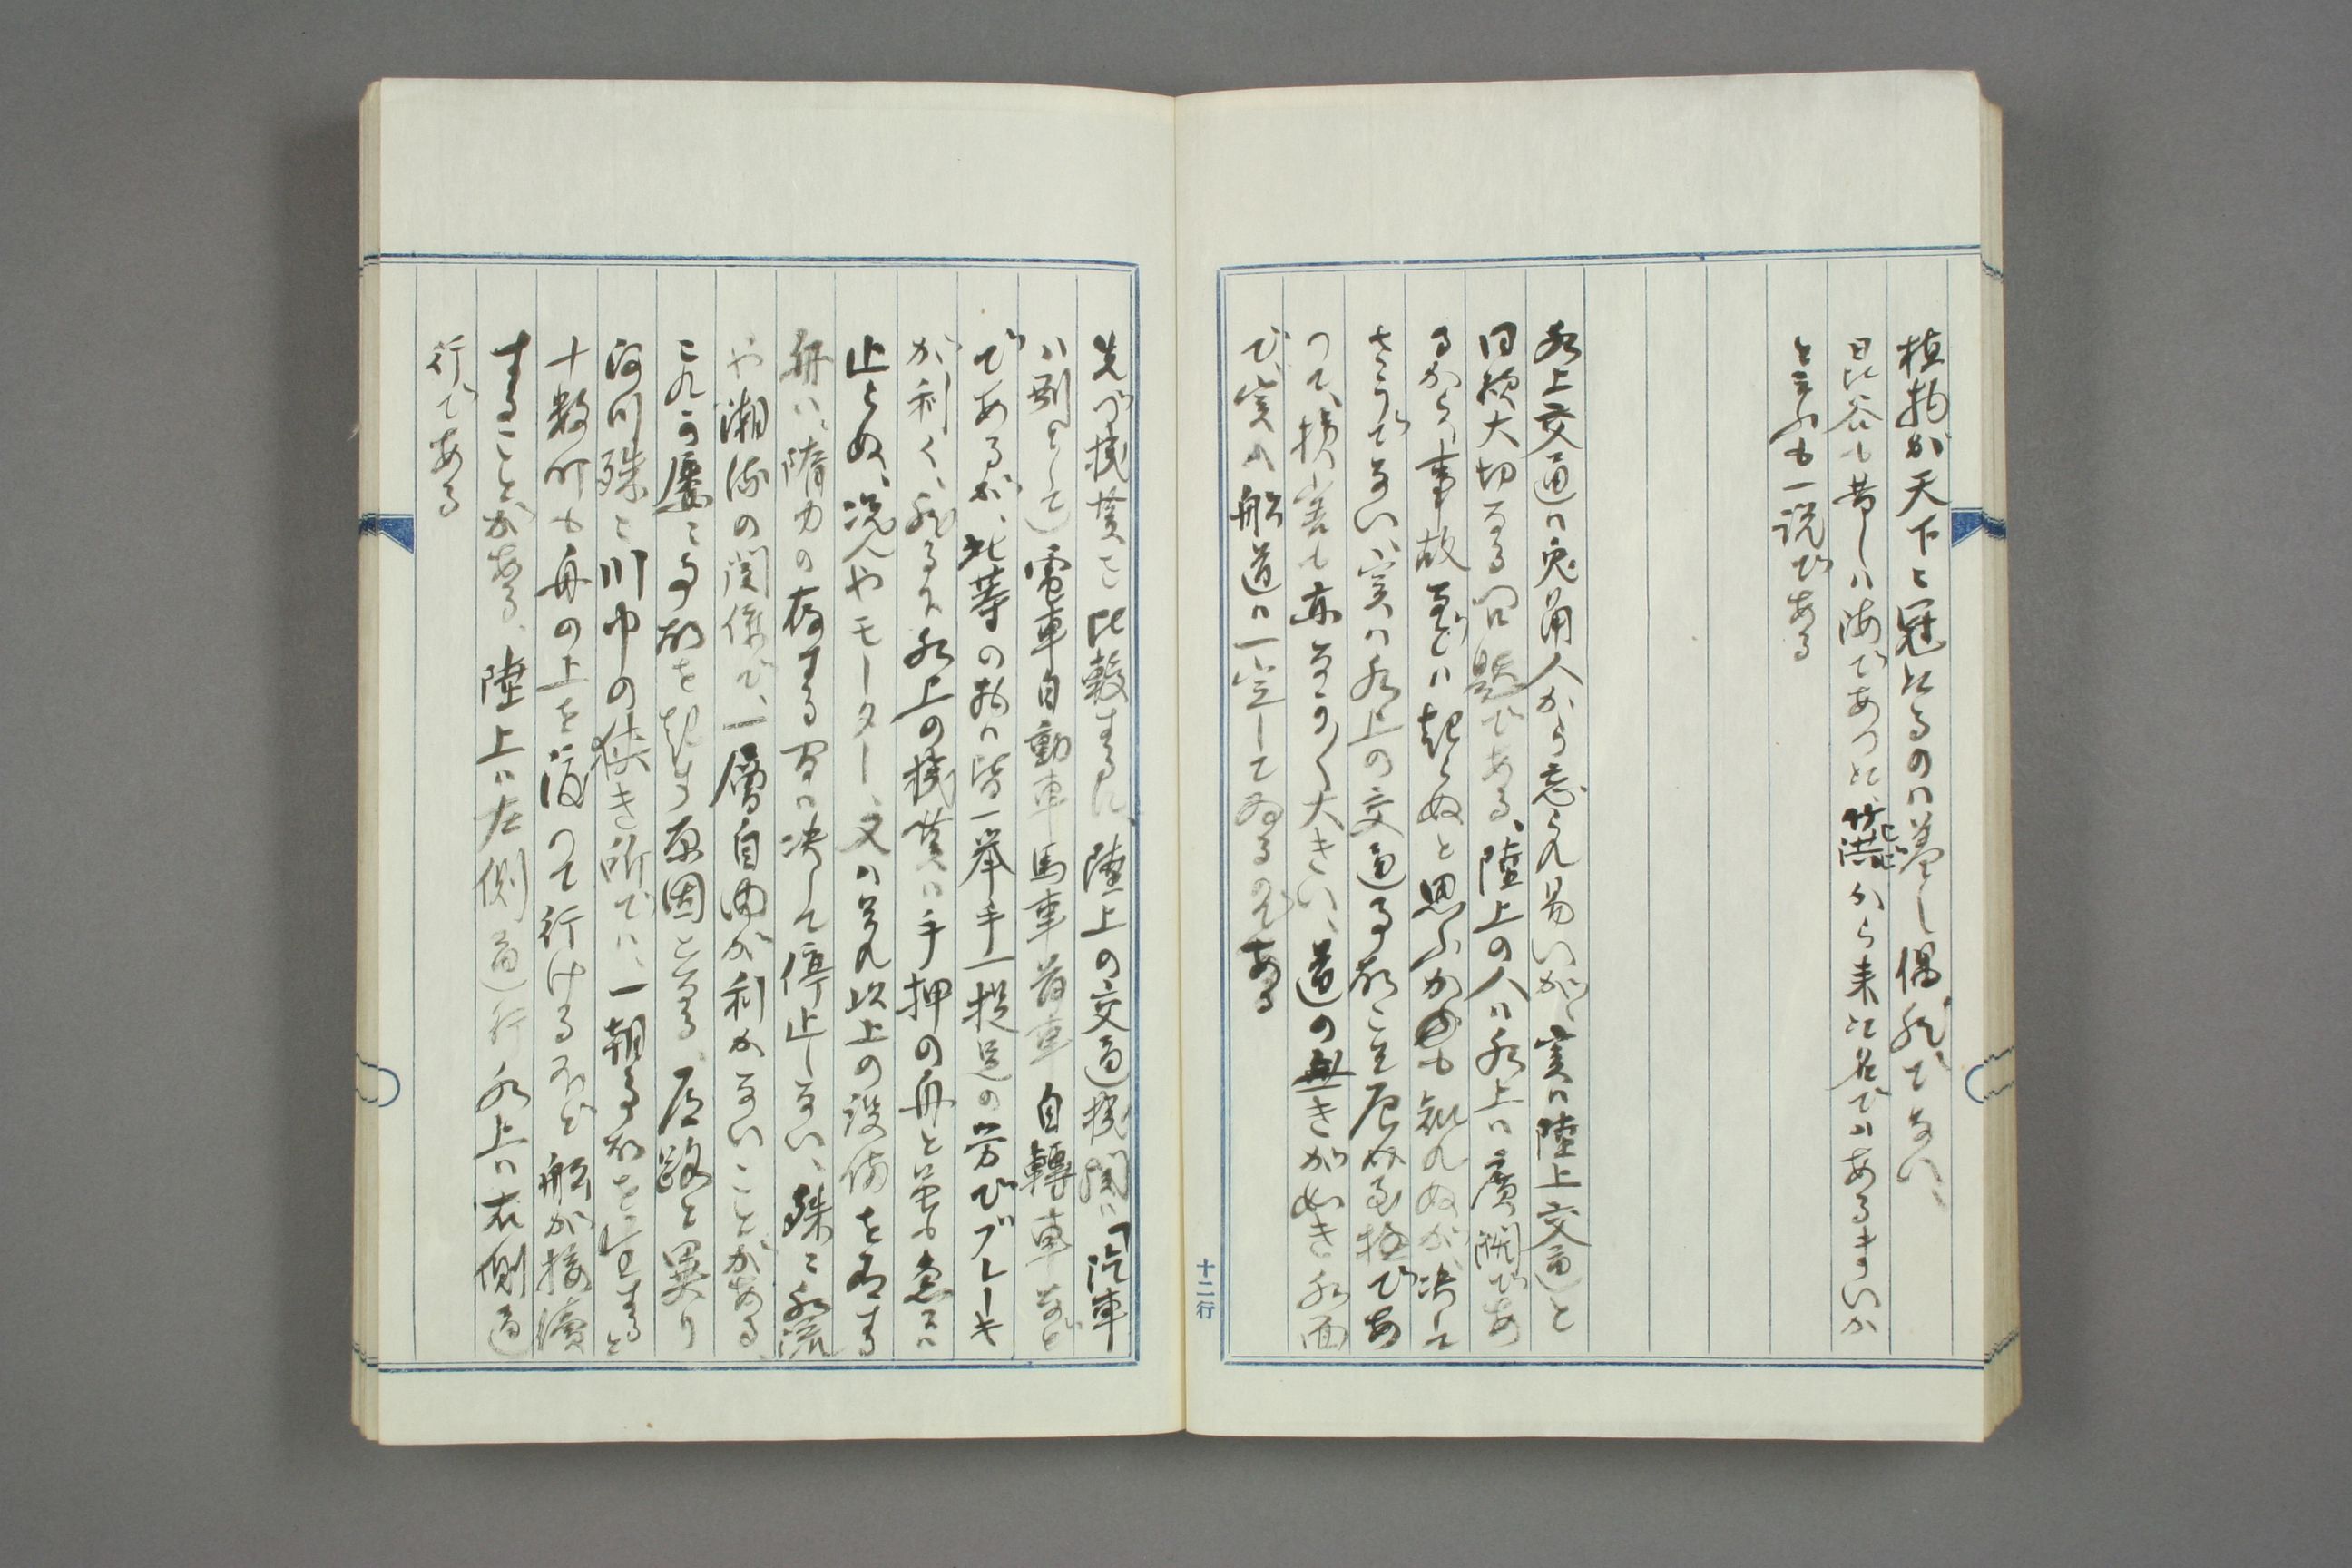 植物が天下に冠たるのは蓋し偶然でない、
日比谷も昔しは海であつた、篊から来た名ではあるまいか
と云ふも一説である
水上交通は兎角人から忘られ易いが、実は陸上交通と
同様大切なる問題である、陸上の人は水上は廣濶であ
るから、事故などは起らぬと思ふかも知れぬが、决して
さうでない、実は水上の交通事故こそ厄介至極であ
つて、損害も亦なかなか大きい、道の無きが如き水面
で、実は船道は一定してゐるのである
十二行
先づ機関を比較するに、陸上の交通機関は「汽車
は別として」電車自動車馬車荷車自轉車など
であるが、此等の物は皆一挙手一投足の労でブレーキ
が利く、然るに水上の機関は手押の舟と雖も急には
止らぬ、况んやモーター、又は夫れ以上の設備を有する
舟は、惰力の存する間は决して停止しない、殊に水流
や潮流の関係で、一層自由が利かないことがある、
これが屡々事故を起す原因となる、道路と異り
河川殊に川巾の狭き所では、一朝事故を生ずると
十数町も舟の上を渡つて行けるほど船が接續
することがある、陸上は左側通行水上は右側通
行である